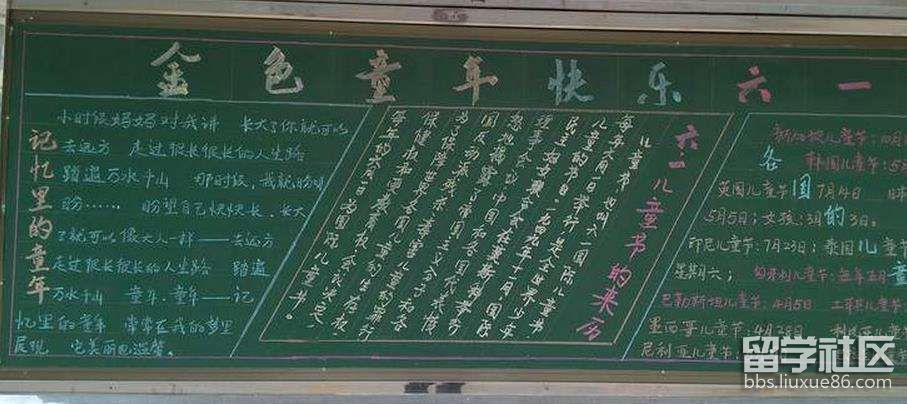 金色童年快乐六一
记忆里的童年
小时候妈妈对我讲 长大了你就可以
去远方 走过很长很长的人生路
踏遍万水千山 那时候,我就盼呀
盼…… 盼望自己快快长,长大
了就可以像大人一样——去远方
走过很长很长的人生路 踏遍
万水千山 童年,童年——记
忆里的童年 常常在我的梦里
展现 它美丽也温馨。
六一儿童节的来历
儿童节也叫六一国际儿童节,
每年六月一日举行 是全世界少年
儿童的节日。一九四九年十一月,国际
民主妇女联合会在莫斯科举行
理事会议,中国和各国代表愤
怒地揭露了帝国主义分子和各
国反动派残杀、毒害儿童的罪行
为了保障世界各国儿童的生存权
保健权和受教育权
每年的六月一日为国际儿童节。
各国的儿童
新加坡儿童节:10月1
韩国儿童节:5月
英国儿童节 7月14日
5月5日;女孩:3月3日。
印尼儿童节:7月23日;泰国儿童节
星期六;
巴勒斯坦儿童节:4月5日
墨西哥儿童节:4月28日
尼利亚儿童节:
留学社区
bbs.liuxue86.com